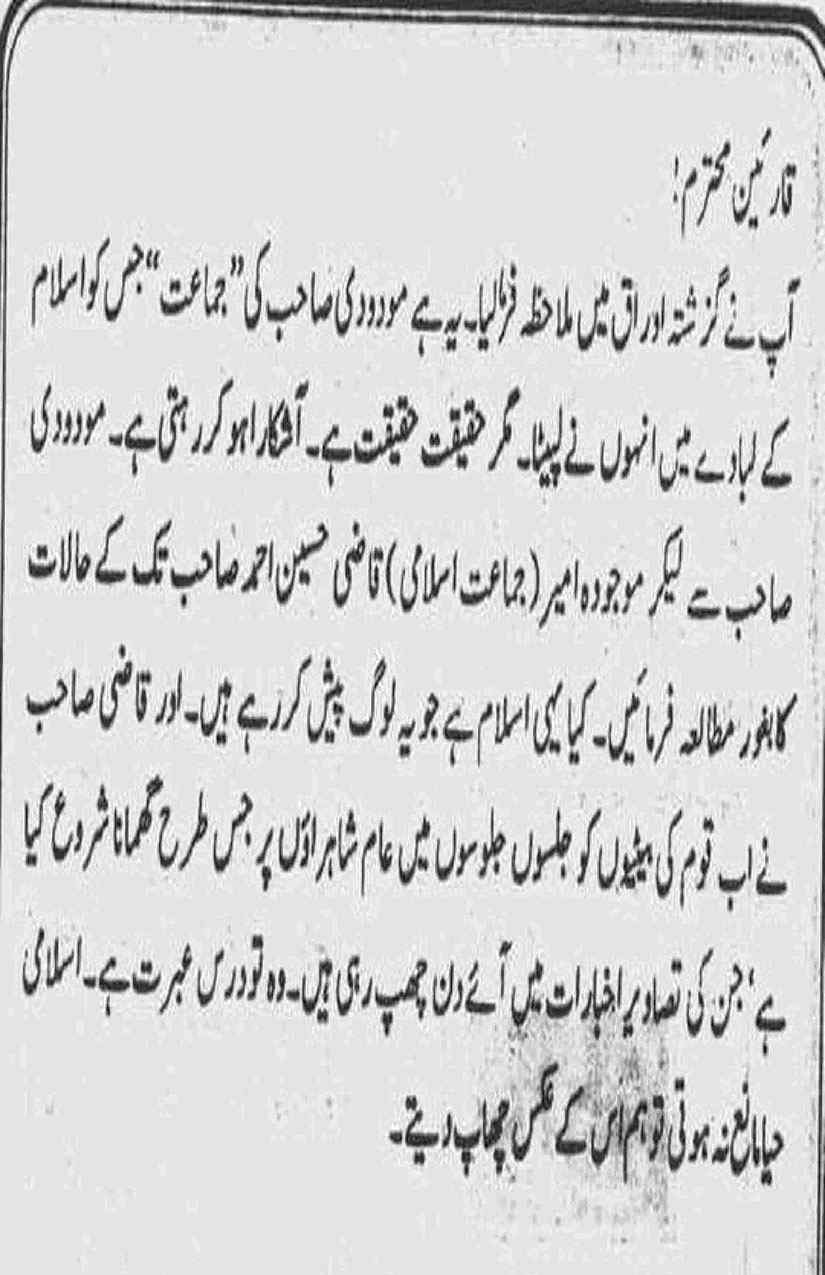 قارئین محترم!
آپ نے گزشتہ اوراق میں ملاحظہ فرمالیا۔ یہ ہے مودودی صاحب کی "جماعت" جس کو اسلام
کے لبادے میں انہوں نے لپیٹا۔ مگر حقیقت حقیقت ہے۔ آشکارا ہو کر رہتی ہے۔ مودودی
صاحب سے لیکر موجودہ امیر (جماعت اسلامی) قاضی حسین احمد صاحب تک کے حالات
کا بغور مطالعہ فرمائیں۔ کیا یہی اسلام ہے جو یہ لوگ پیش کر رہے ہیں۔ اور قاضی صاحب
نے اب قوم کی بیٹیوں کو جلسوں جلوسوں میں عام شاہراؤں پر جس طرح گھمانا شروع کیا
ہے' جن کی تصاویر اخبارات میں آئے دن چھپ رہی ہیں۔ وہ تو درس عبرت ہے۔ اسلامی
حیا مانع نہ ہوتی تو ہم اس کے عکس چھاپ دیتے۔